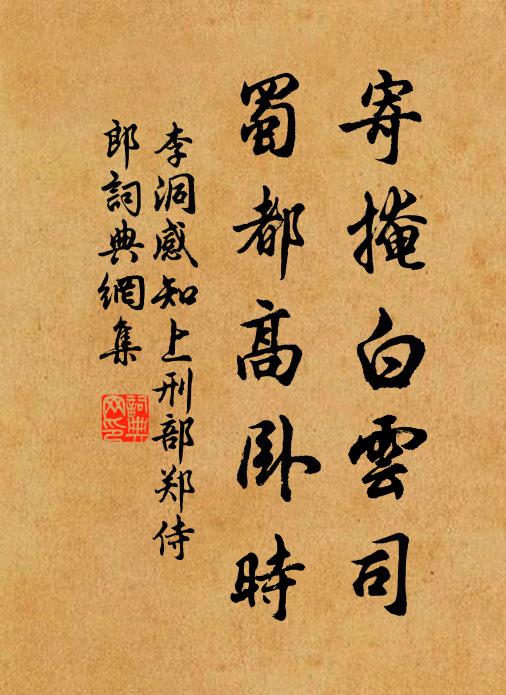 寄掩白雲司
蜀都高卧時
李洞感知上刑部郑侍
郎詞典網集
詞典
网印